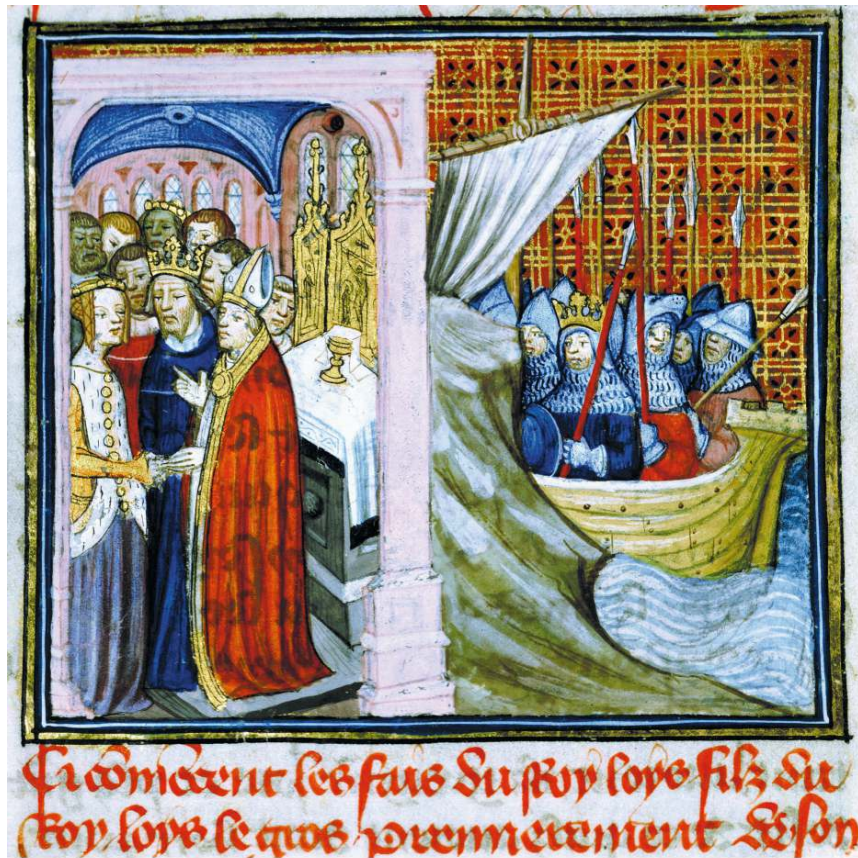 Ci cõmẽcent les fais du Roy loys filz du
Roy loys le gros premierement de son